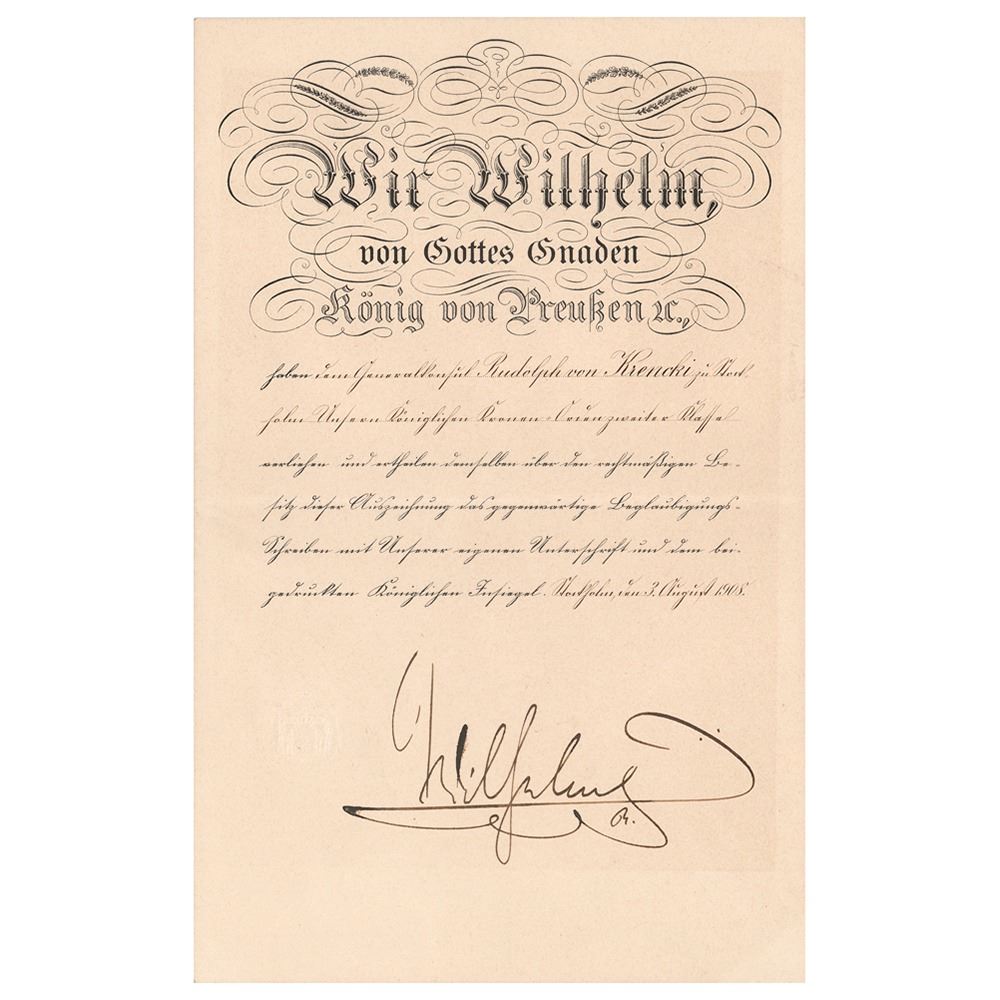 Wir Wilhelm,
von Gottes Gnaden
König von Preußen ꝛc.,
haben dem Generalkonsul Rudolph von Krencki zu Stock-
holm Unsern Königlichen Kronen-Orden zweiter Klasse
verliehen und ertheilen demselben über den rechtmäßigen Be-
sitz dieser Auszeichnung das gegenwärtige Beglaubigungs-
Schreiben mit Unserer eigenen Unterschrift und dem bei-
gedruckten Königlichen Insiegel. Stockholm, den 3. August 1908.
Wilhelm
R.